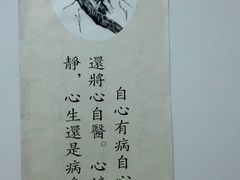 自心有病自心
還將心自醫。心
靜，心生還是病